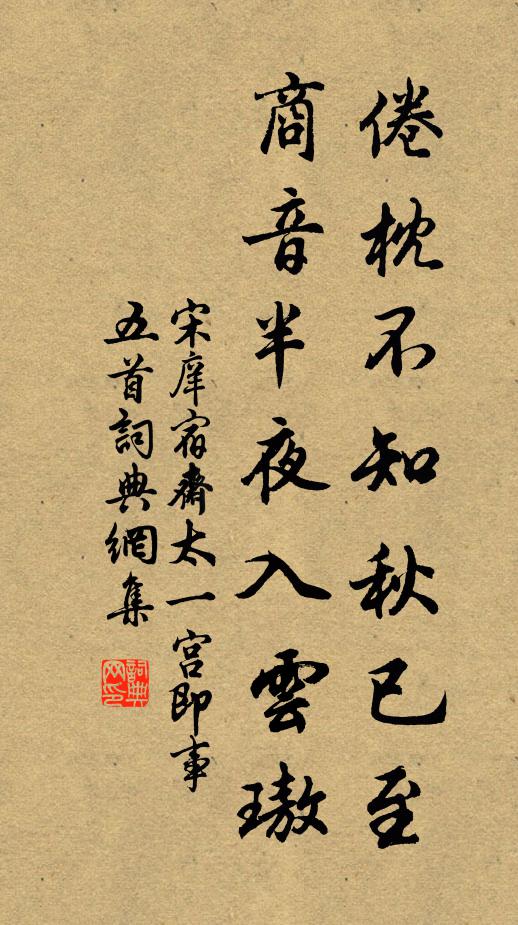 倦枕不知秋已至
商音半夜入雲璈
宋庠宿齋太一宮即事
五首詞典網集
詞典
网印